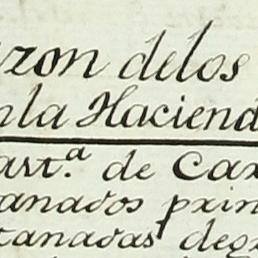 zon delos
nla Haciend
art.ª de Cax
anados prin
tanadas deg